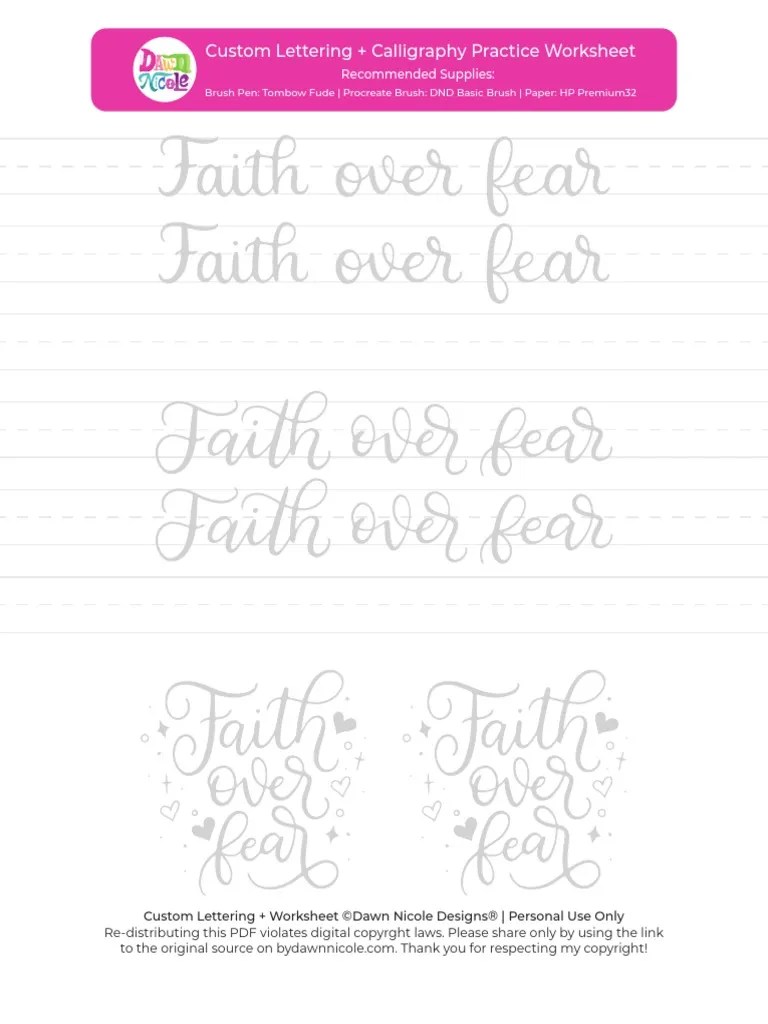 Dawn
Nicole
Custom Lettering + Calligraphy Practice Worksheet
Recommended Supplies:
Brush Pen: Tombow Fude | Procreate Brush: DND Basic Brush | Paper: HP Premium32
Faith over fear
Faith over fear
Faith over fear
Faith over fear
Faith
over
fear
Faith
over
fear
Custom Lettering + Worksheet ©Dawn Nicole Designs® | Personal Use Only
Re-distributing this PDF violates digital copyrght laws. Please share only by using the link
to the original source on bydawnnicole.com. Thank you for respecting my copyright!